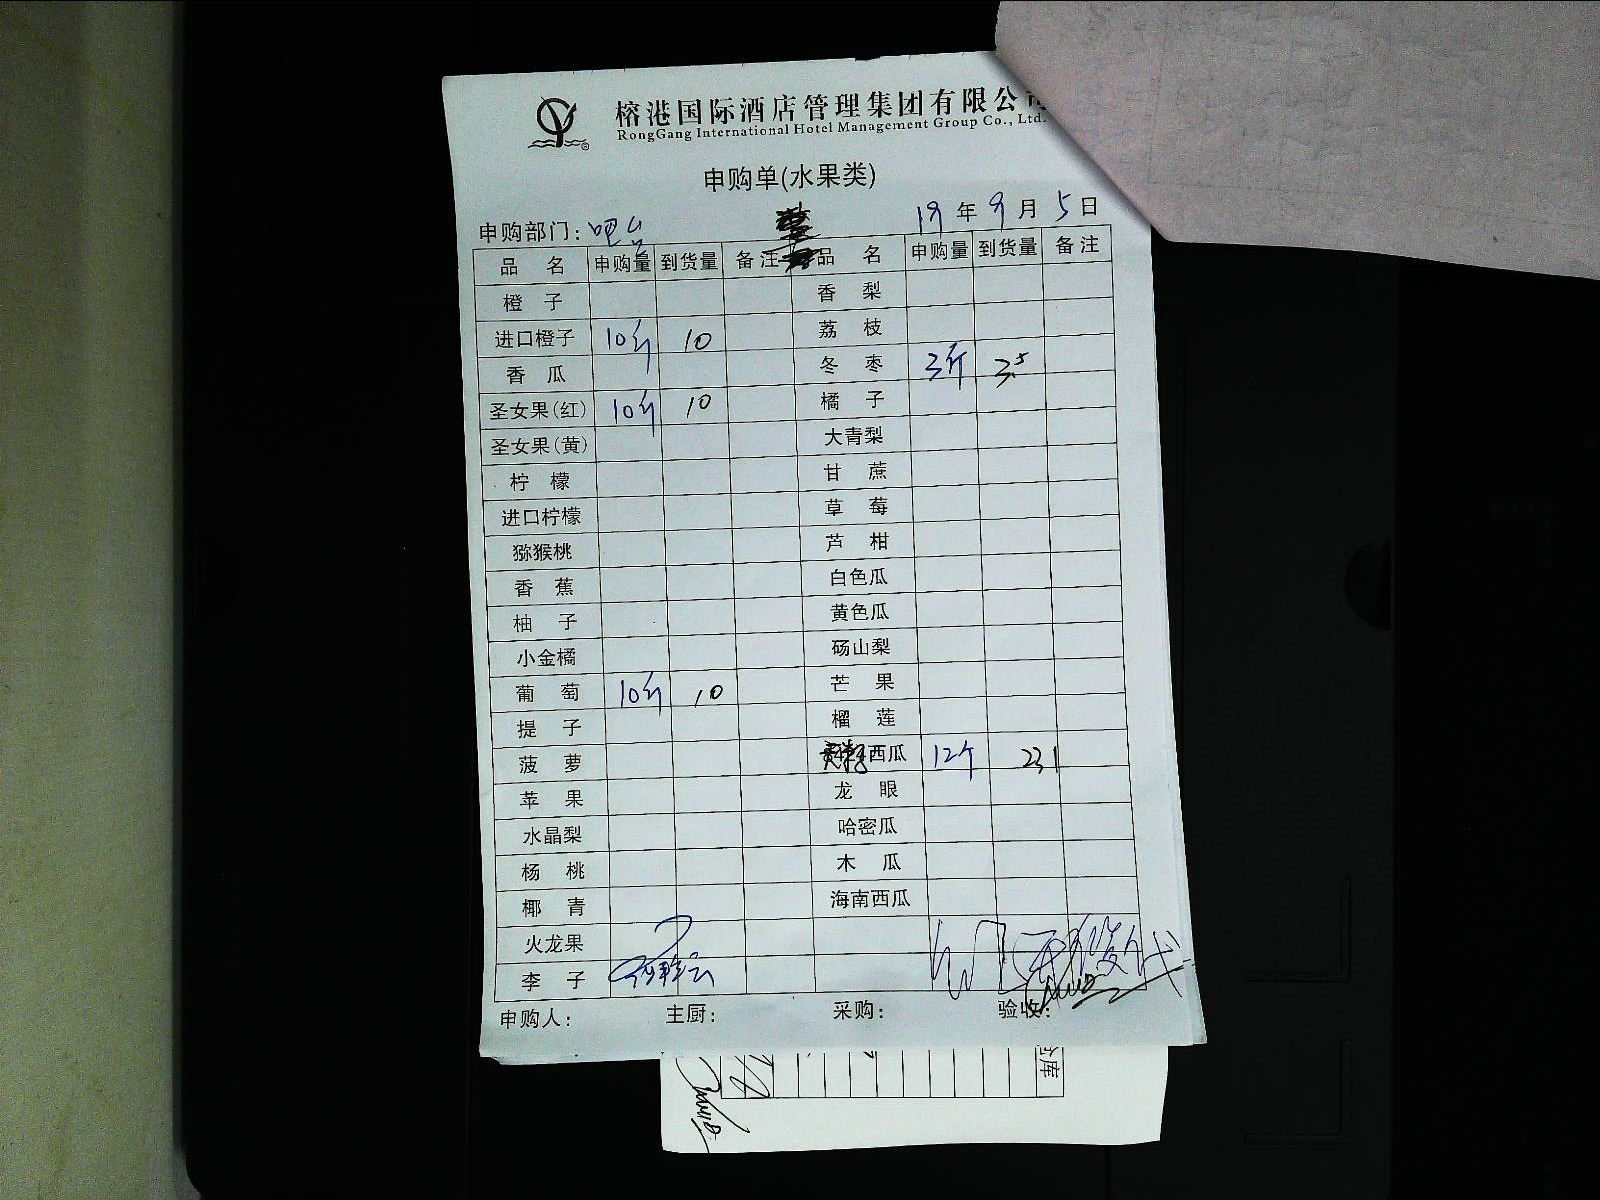 榕港国际酒店管理集团有限公司
RongGang International Hotel Management Group Co., Ltd.
申购单(水果类)
申购部门: 吧台 19年9月5日
品名 申购量 到货量 备注 品名 申购量 到货量 备注
橙子 香梨
进口橙子 10斤 10 荔枝
香瓜 冬枣 3斤 3.5
圣女果(红) 10斤 10 橘子
圣女果(黄) 大青梨
柠檬 甘蔗
进口柠檬 草莓
猕猴桃 芦柑
香蕉 白色瓜
柚子 黄色瓜
小金橘 砀山梨
葡萄 10斤 10 芒果
提子 榴莲
菠萝 西瓜 12个 231
苹果 龙眼
水晶梨 哈密瓜
杨桃 木瓜
椰青 海南西瓜
火龙果
李子
申购人: 主厨: 采购: 验收: